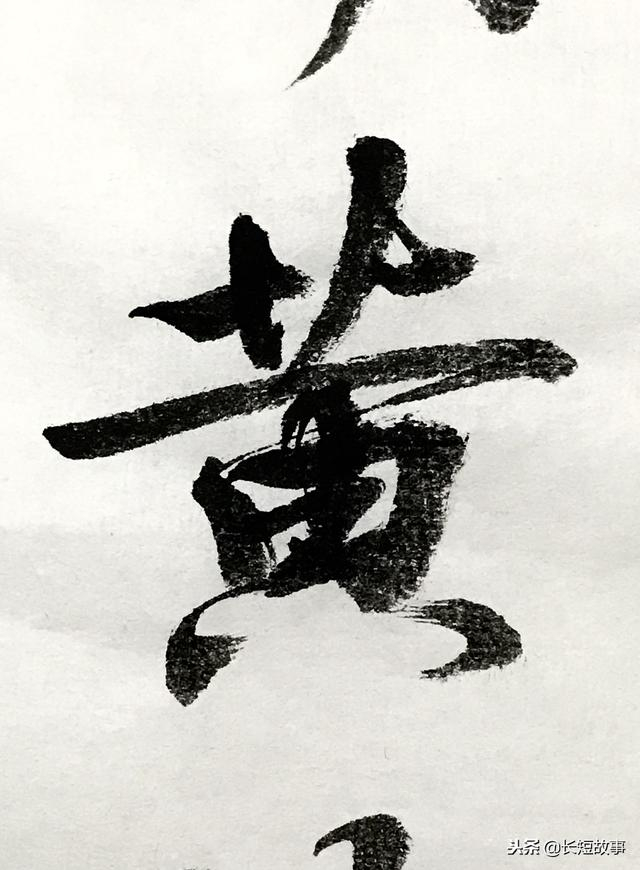 黄
头条 @长短故事